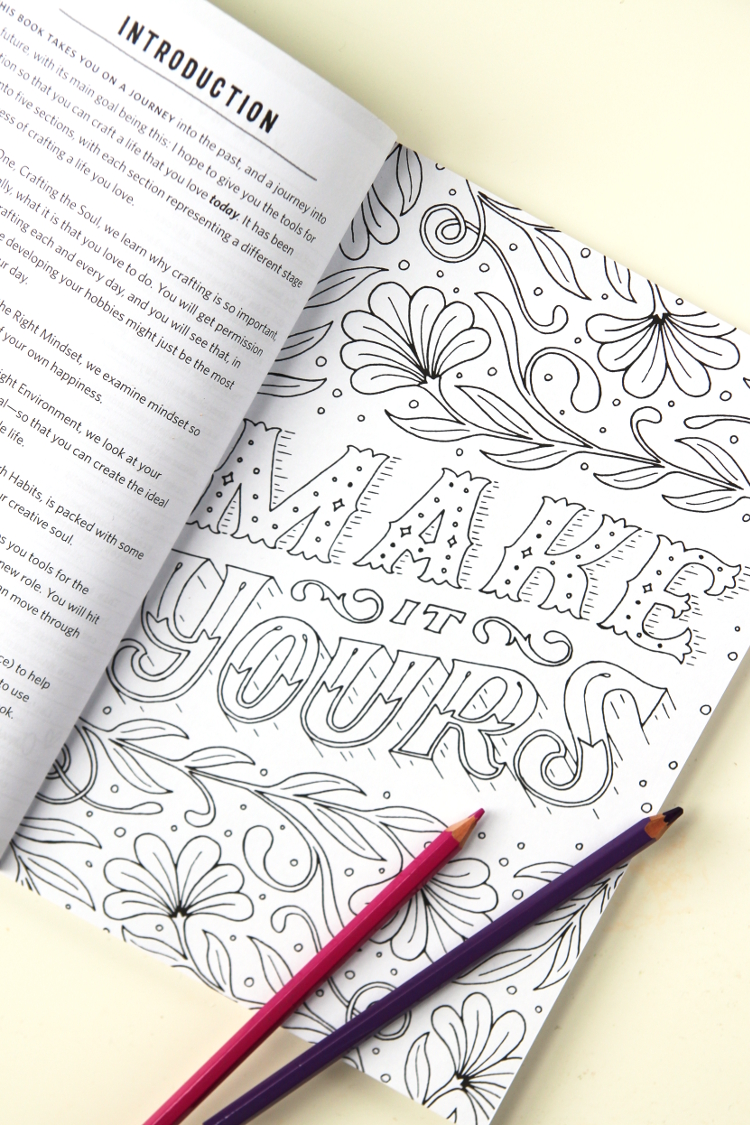 INTRODUCTION
HIS BOOK TAKES YOU ON A JOURNEY into the past, and a journey into
future, with its main goal being this: I hope to give you the tools for
tion so that you can craft a life that you love today. It has been
nto five sections, with each section representing a different stage
ess of crafting a life you love.
One, Crafting the Soul, we learn why crafting is so important,
ally, what it is that you love to do. You will get permission
rafting each and every day, and you will see that, in
e developing your hobbies might just be the most
ur day.
he Right Mindset, we examine mindset so
f your own happiness.
ight Environment, we look at your
al—so that you can create the ideal
le life.
h Habits, is packed with some
ur creative soul.
s you tools for the
new role. You will hit
an move through
ce) to help
to use
ok.
MAKE
IT
YOURS